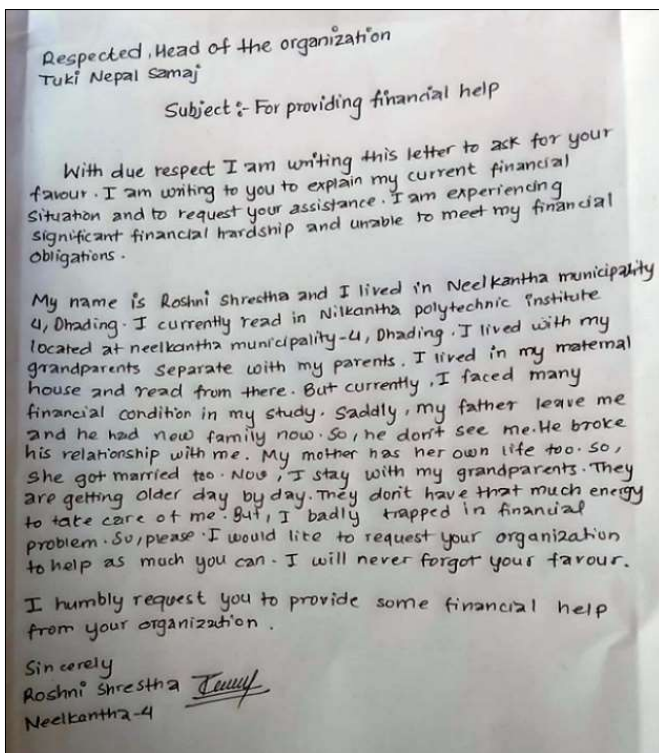 Respected, Head of the organization
Tuki Nepal Samaj
Subject:- For providing financial help
With due respect I am writing this letter to ask for your
favour. I am writing to you to explain my current financial
Situation and to request your assistance. I am experiencing
significant financial hardship and unable to meet my financial
obligations.
My name is Roshni Shrestha and I lived in Neelkantha municipality
4, Dhading. I currently read in Nilkantha polytechnic institute
located at neelkantha municipality-4, Dhading. I lived with my
grandparents separate with my parents. I lived in my maternal
house and read from there. But currently, I faced many
financial condition in my study. Saddly, my father leave me
and he had new family now. So, he don't see me. He broke
his relationship with me. My mother has her own life too. So,
she got married too. Now, I stay with my grandparents. They
are getting older day by day. They don't have that much energy
to take care of me. But, I badly trapped in financial
problem. So, please. I would like to request your organization
to help as much you can. I will never forgot your favour.
I humbly request you to provide some financial help
from your organization.
Sincerely
Roshni Shrestha
Neelkantha-4